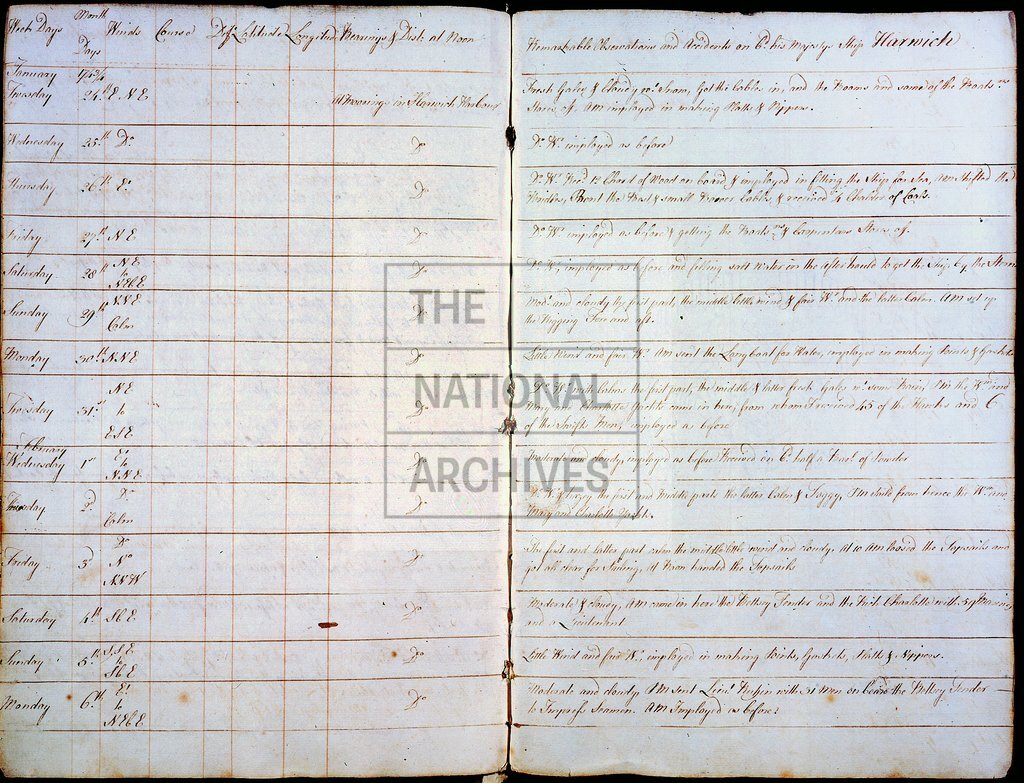 Week Days Month Days Winds Course Dist. Latitude Longitud Bearings & Dist: at Noon
Remarkable Observations and Accidents on Bd. his Majestys Ship Harwich
January 174¾
Tuesday 24th E N E At Moorings in Harwich Harbour
Fresh Gales & Cloudy wr. Snow, Got the Cables in, and the Booms and some of the Boats.ns
Stores off. AM imployed in making Platts & Nippers.
Wednesday 25th Do. Do
Do. Wr. imployed as before
Thursday 26th Eo. Do
Do. Wr. Reed. 12 Chord of Wood on board & imployed in fitting the Ship for Sea, AM shifted the
the Best & small Bower Cables, & received ¼ Chalder of Coals.
Friday 27th N E Do
Do. Wr. imployed as before & getting the Boats.ns & Carpenters Stores off.
Saturday 28th N E to NEbE Do
Do. Wr. imployed as before and filling salt Water in the after hould to get the Ship by the Stern
Sunday 29th NNE Calm Do
Modt. and cloudy the first part, the middle little wind & fair Wr. and the latter Calm. AM set up
the Rigging Fore and aft.
Monday 30th NNE Do
Little Wind and fair Wr. AM sent the Longboat for Water, imployed in making Points & Gaskets
Tuesday 31st NE to ESE Do
Do. Wr. with Calms the first part, the middle & latter fresh Gales wt. some Rain, PM the Wm. and
Mary and Charlotte Yachts came in here, from whom I received 45 of the Hawkes and 6
of the Swifts Men, imployed as before
February
Wednesday 1st Eo. to NNE Do
Moderate and cloudy, imployed as before Received on Bd. half a Barrl. of Powder
Thursday 2d Do. Calm Do
Do. Wr. & Foggy the first and middle parts the latter Calm & Foggy, PM Sail'd from hence the Wm. and
Mary and Charlotte Yachts.
Friday 3d Do. No. NNW Do
The first and latter part calm the middle little wind and cloudy. At 10 AM loosed the Topsails and
got all clear for Sailing, At Noon handed the Topsails
Saturday 4th SbE Do
Moderate & cloudy, AM came in here the Tender and the Charlotte with 59 Marines
and a Lieutenant
Sunday 5th SSE to SbE Do
Little Wind and fair Wr., imployed in making Points, Gaskets, Platts & Nippers.
Monday 6th Eo. to NEbE Do
Moderate and cloudy, AM sent Lieut. with 31 Men on board the Tender
to Impress Seamen. AM Imployed as before
THE
NATIONAL
ARCHIVES